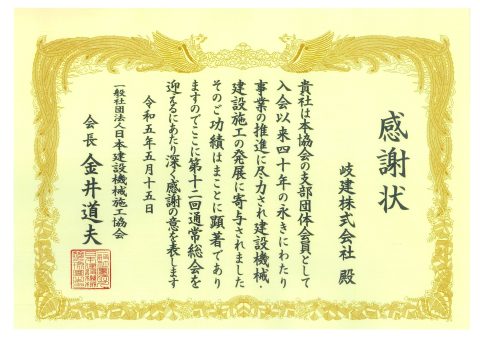 感謝状
岐建株式会社 殿
貴社は本協会の支部団体会員として
入会以来四十年の永きにわたり
事業の推進に尽力され建設機械・
建設施工の発展に寄与されました
そのご功績はまことに顕著であり
ますのでここに第十二回通常総会を
迎えるにあたり深く感謝の意を表します
令和五年五月十五日
一般社団法人日本建設機械施工協会
会長 金井道夫